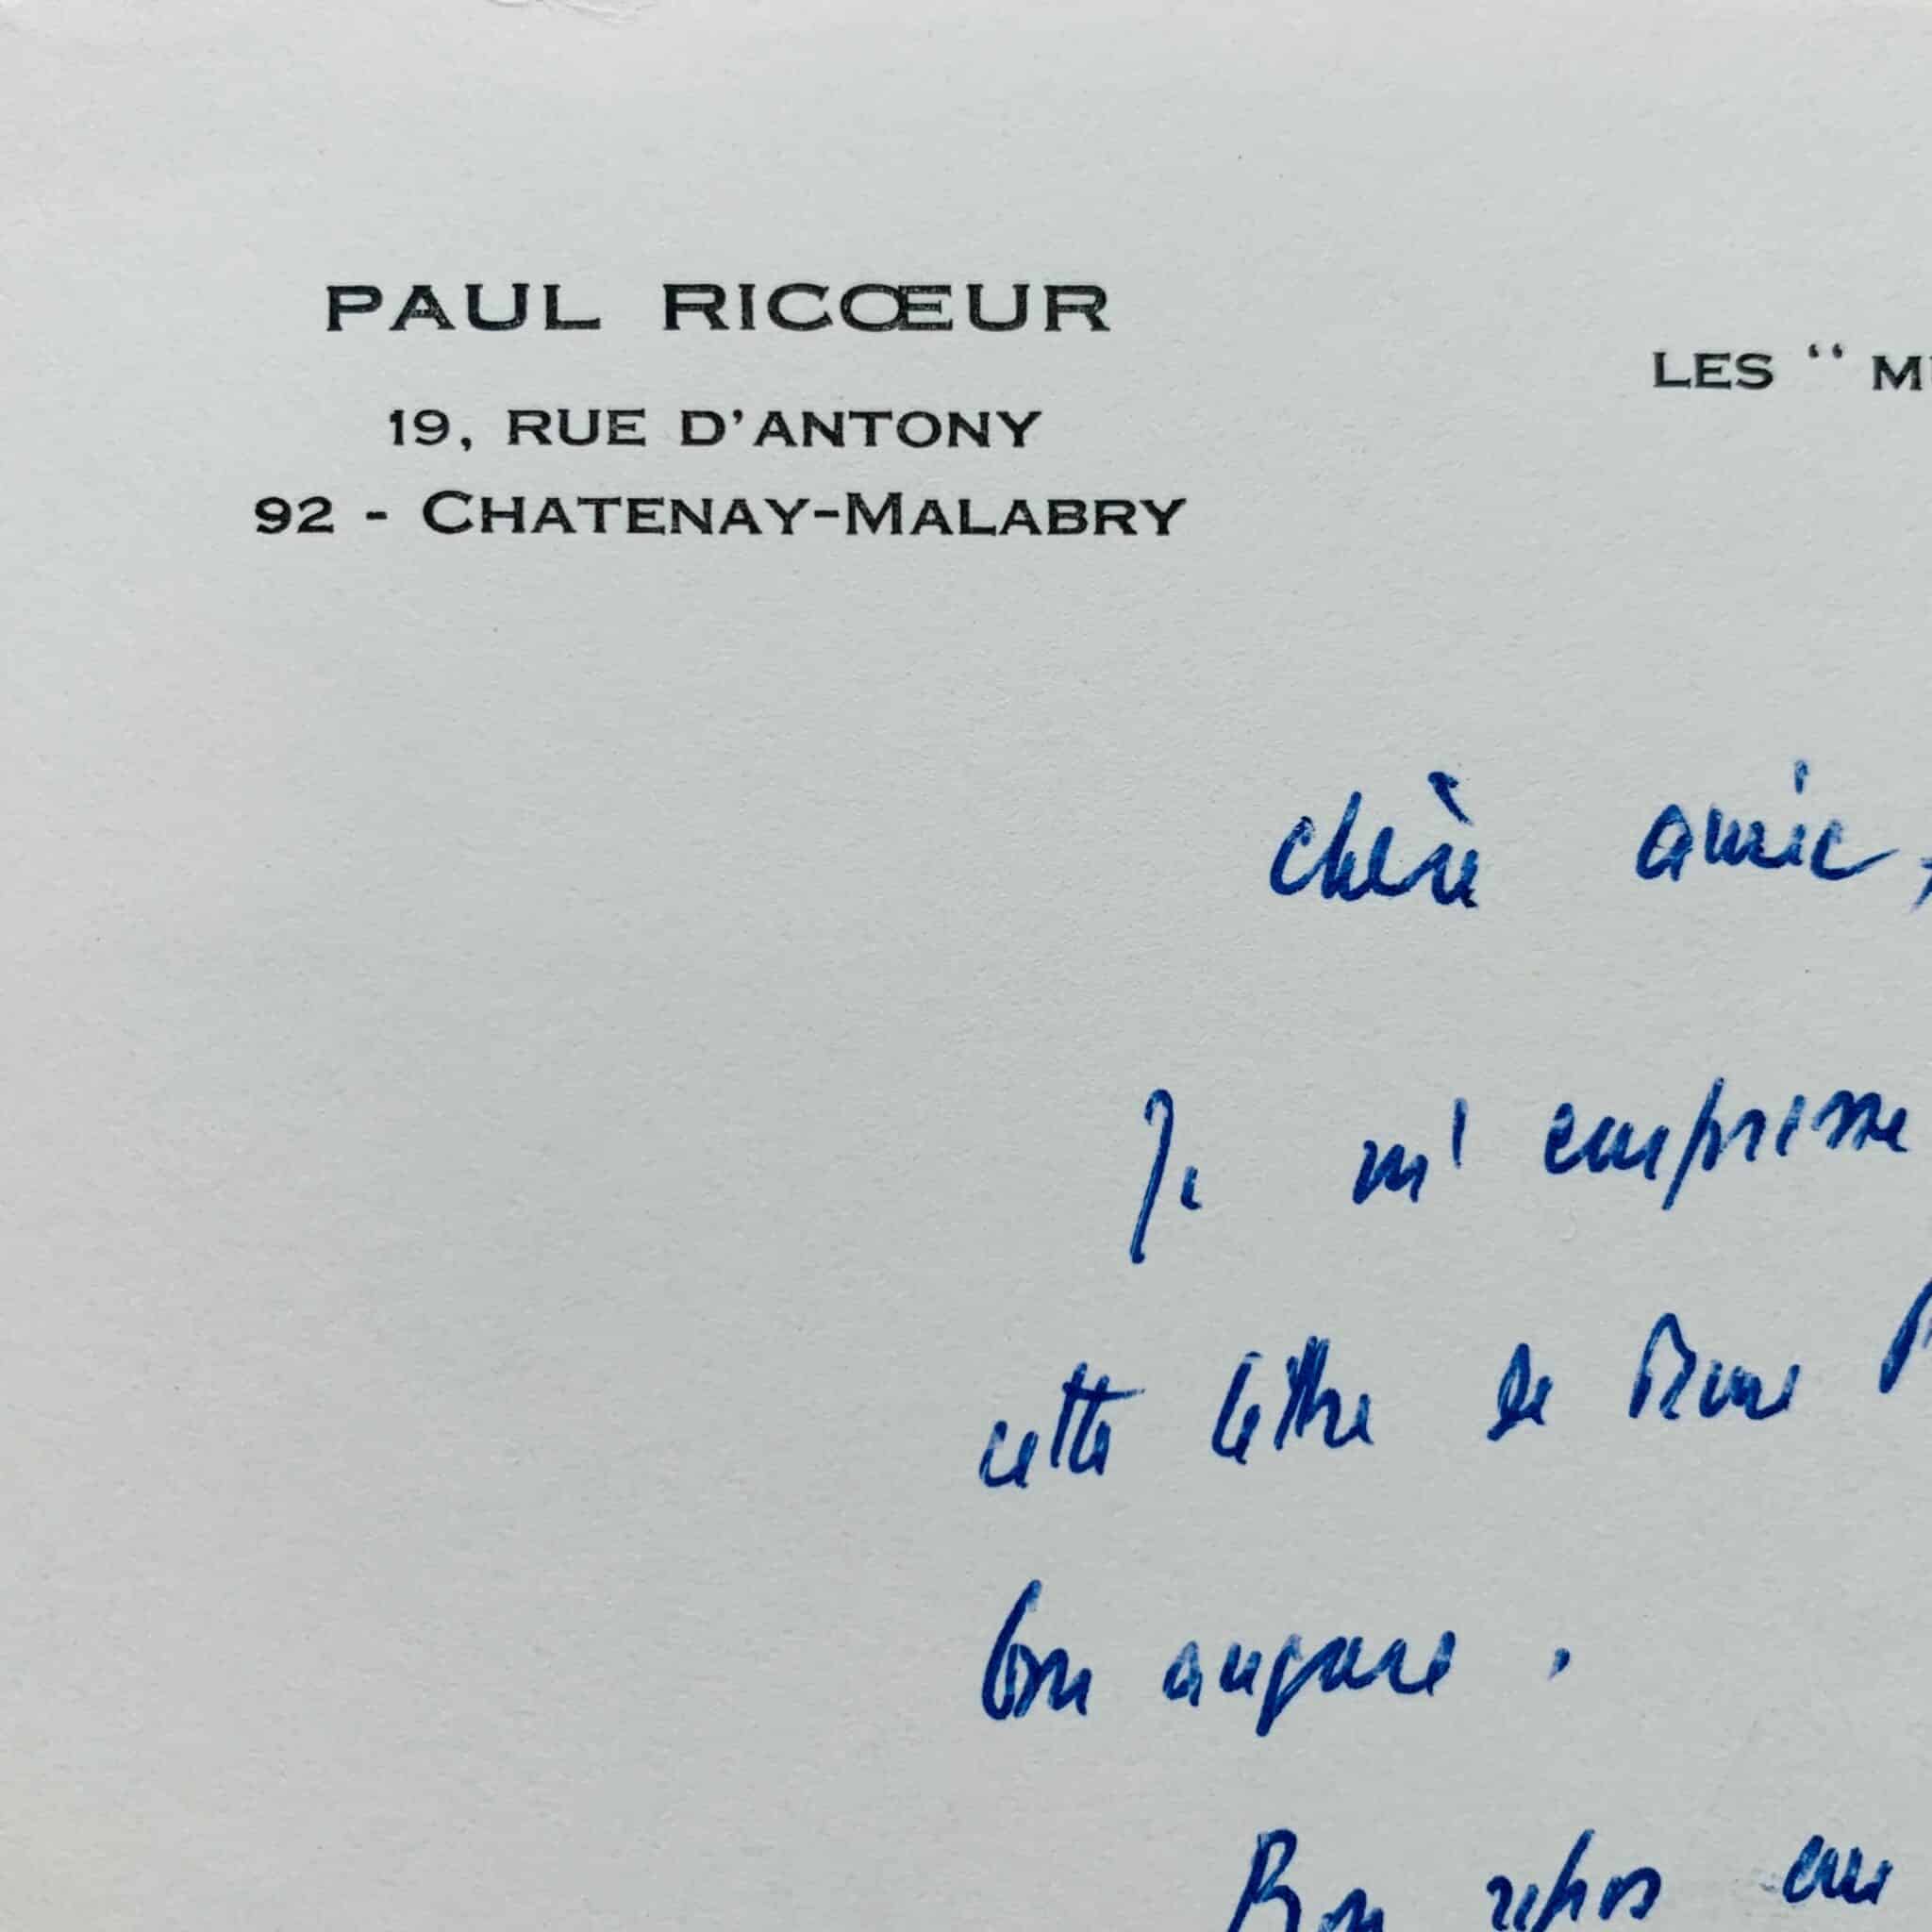 PAUL RICŒUR
19, RUE D'ANTONY
92 - CHATENAY-MALABRY
LES "
chère amie,
Je m'empresse
cette lettre de
bon augure.
Bon repos